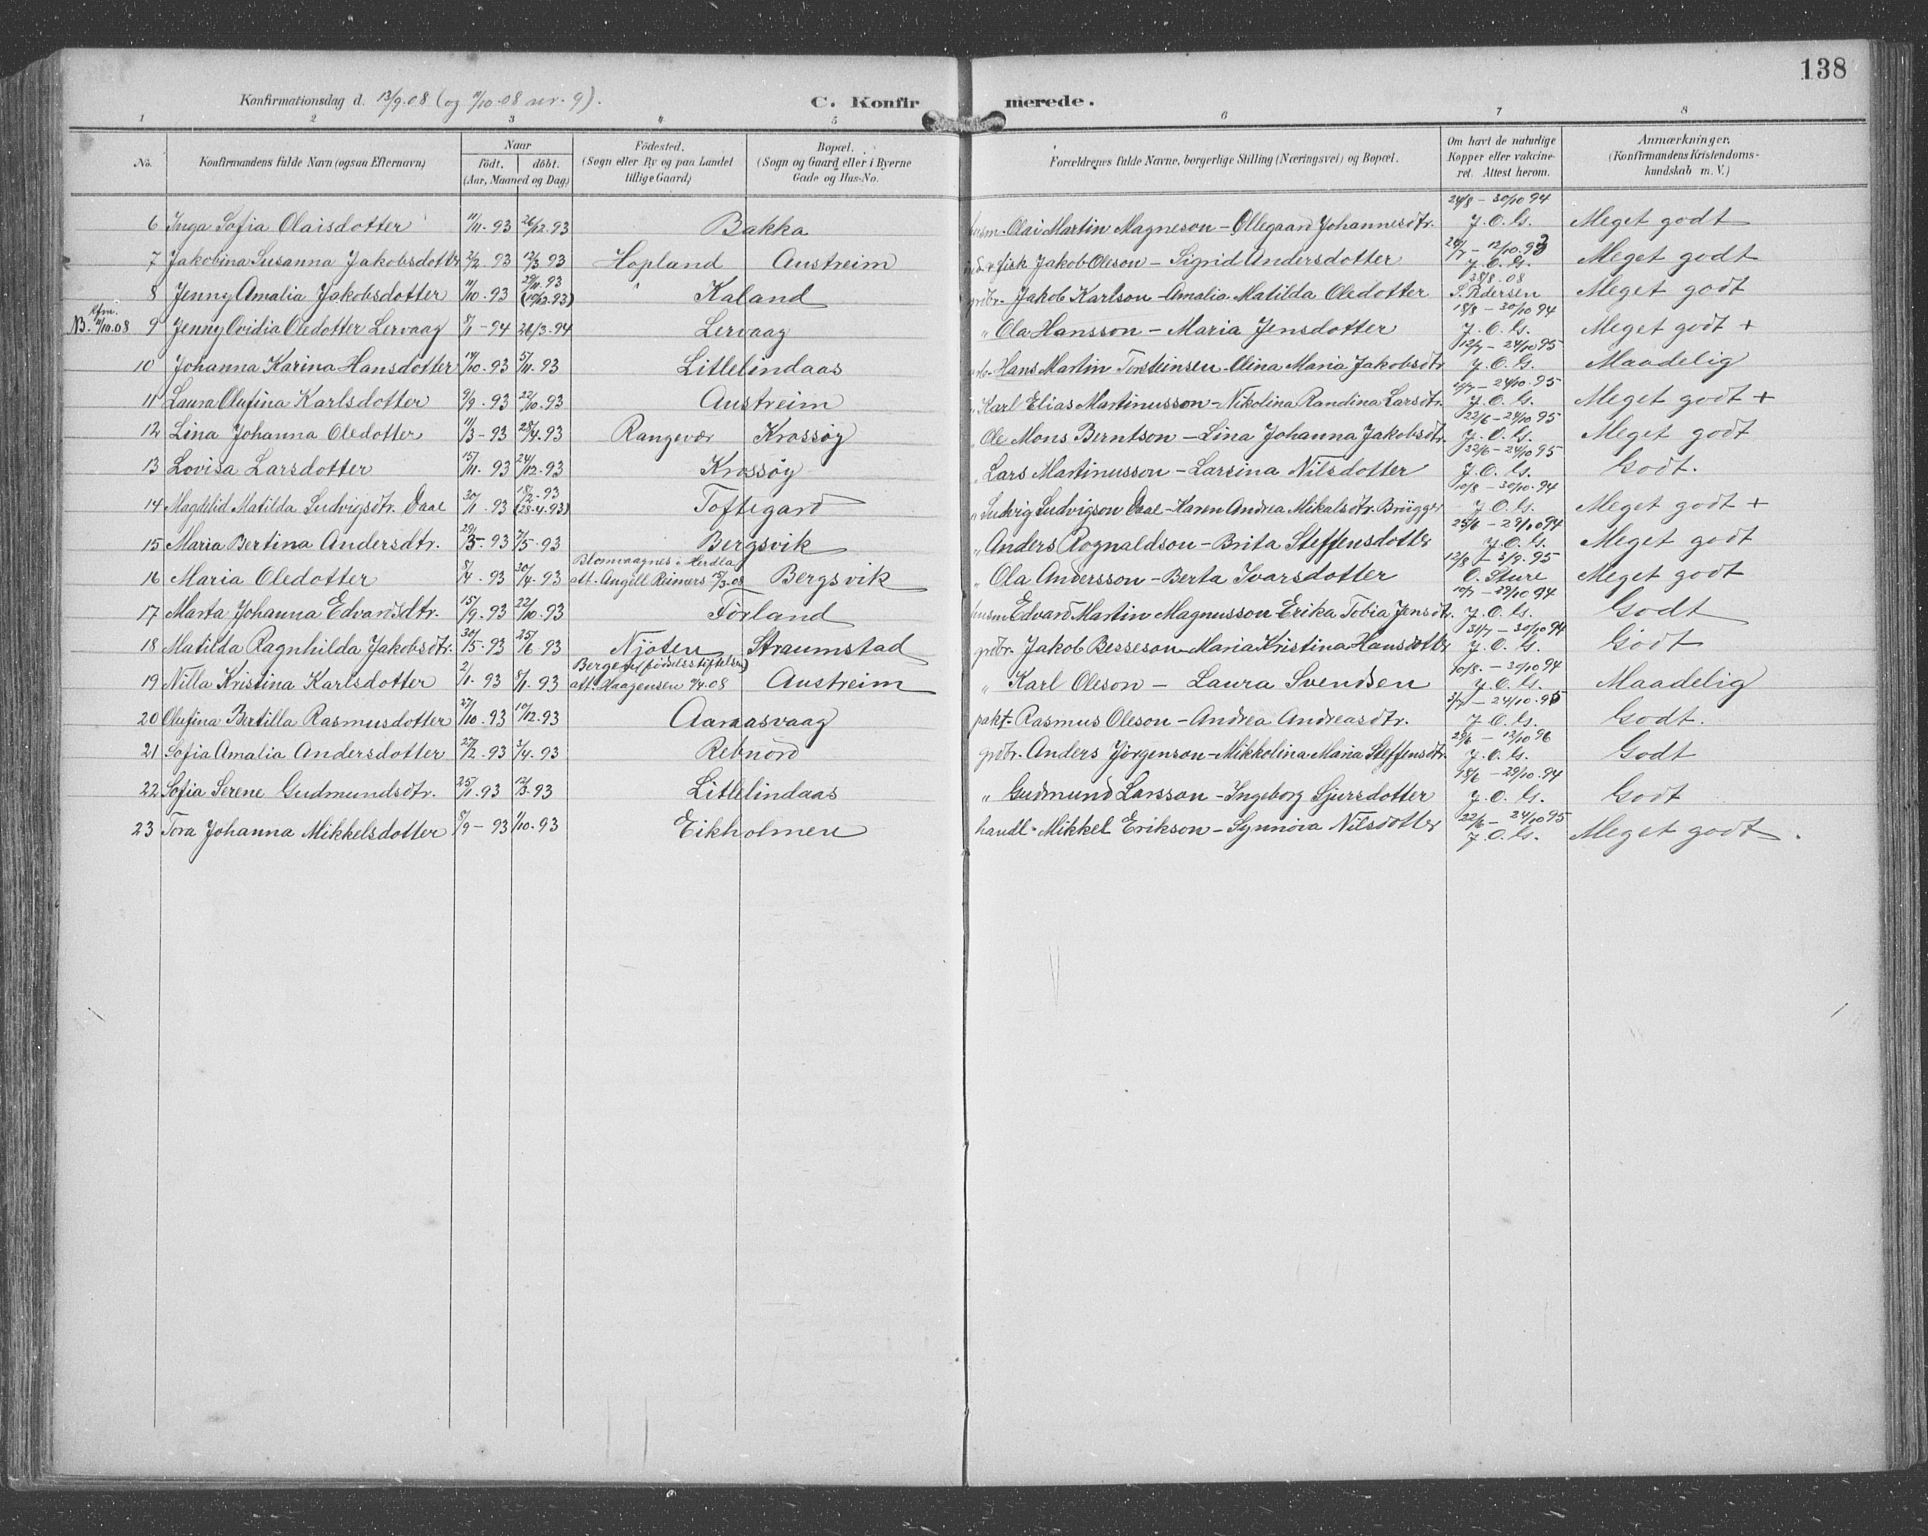 138
Konfirmationsdag d. 13/9.08 (og 11/10.08 nr. 9). C. Konfirmerede.
1 2 3 4 5 6 7 8
No. Konfirmandens fulde Navn (ogsaa Efternavn) Naar Født. døbt. (Aar, Maaned og Dag) Fødested. (Sogn eller By og paa Landet tillige Gaard) Bopæl. (Sogn og Gaard eller i Byerne Gade og Hus-No. Forældrenes fulde Navne, borgerlige Stilling (Næringsvei) og Bopæl. Om havt de naturlige Kopper eller vakcineret. Attest herom. Anmærkninger. (Konfirmandens Kristendomskundskab m. V.)
6 Inga Sofia Olaisdotter 11/11.93 26/12.93 Bakka husm. Olai Martin Magneson - Ollegaard Johannesdtr. 24/8 - 30/10 94 J.O.G. Meget godt
7 Jakobina Susanna Jakobsdotter 2/2.93 12/3.93 Hopland Austreim fisk Jakob Oleson - Sigrid Andersdotter J.O.G. Meget godt
8 Jenny Amalia Jakobsdotter 11/10.93 29/10.93 Kaland grdbr. Jakob Karlson - Amalia Matilda Oledotter 28/8.08 S. Pedersen Meget godt
NB. 11/10.08 9 Jenny Ovidia Oledotter Lervaag 8/1-94 26/3.94 Lervaag " Ola Hansson - Maria Jensdotter 18/8 - 30/10 94 J.O.G. Meget godt +
10 Johanna Karina Hansdotter 14/10.93 5/11.93 Litlelindaas Hans Martin Torsteinsen - Olina Maria Jakobsdtr 12/7 - 24/10 95 J.O.G. Maadelig
11 Laura Olufina Karlsdotter 9/9.93 22/10.93 Austreim " Karl Elias Martinusson - Nikolina Randina Larsdtr. 24/10.95 J.O.G. Meget godt +
12 Lina Johanna Oledotter 11/3-93 28/4.93 Rangevær Krossøy " Ole Mons Berntson - Lina Johanna Jakobsdtr. 22/6 - 24/10 95 J.O.G. Meget godt
13 Lovisa Larsdotter 15/11.93 24/12.93 Krossøy " Lars Martinusson - Larsina Nilsdotter 22/6 - 24/10 95 J.O.G. Godt.
14 Magdlid Matilda Ludvigsdtr. Daae 30/1.93 18/2.93 (28.4.93) Toftegard " Ludvig Ludvigson Daae - Karen Andrea Mikalsdtr. Brügger 10/8 - 30/10.94 J.O.G. Meget godt +
15 Maria Bertina Andersdtr. 29/3.93 7/5.93 Bergsvik " Anders Rognaldson - Brita Steffensdotter 25/6 - 29/10 94 J.O.G. Meget godt
16 Maria Oledotter 8/4.93 30/4.93 Blomvaagnes i Herdla att. Angell Reimers Bergsvik " Ola Andersson - Berta Ivarsdotter 12/8 - 3/9.95 O. Sture Meget godt
17 Marta Johanna Edvardsdtr. 15/9.93 22/10.93 Førland husm Edvard Martin Magnusson Erika Tobia Jensdtr. 10/7 - 29/10 94 J.O.G. Godt
18 Matilda Ragnhilda Jakobsdtr. 30/5.93 25/6.93 Njøten Straumstad grdbr. Jakob Besseson - Maria Kristina Hansdotter 31/7 - 30/10 94 J.O.G. Godt
19 Nilla Kristina Karlsdotter 2/1.93 8/1.93 Bergen (fødselsstiftelsen) att. Haagensen 9/4.08 Austreim " Karl Oleson - Laura Svendsen 10/8. - 30/10 94 J.O.G. Maadelig
20 Olufina Bertilla Rasmusdotter 27/10.93 17/12.93 Aaraasvaag pakt. Rasmus Oleson - Andrea Andreasdtr. 3/7 - 24/10.95 J.O.G. Godt.
21 Sofia Amalia Andersdotter 27/2.93 3/4.93 Rebnord grdbr. Anders Jörgenson - Mikkolina Maria Steffensdtr. 29/6 - 12/10 96 J.O.G. Godt
22 Sofia Serene Gudmundsdtr. 25/1.93 12/3.93 Litlelindaas " Gudmund Larsson - Ingeborg Sjursdotter 18/6 - 29/10.94 J.O.G. Godt
23 Tora Johanna Mikkelsdotter 8/9-93 1/10.93 Eikholmen handl. Mikkel Erikson - Synnöva Nilsdotter 22/6 - 24/10 95 J.O.G. Meget godt.